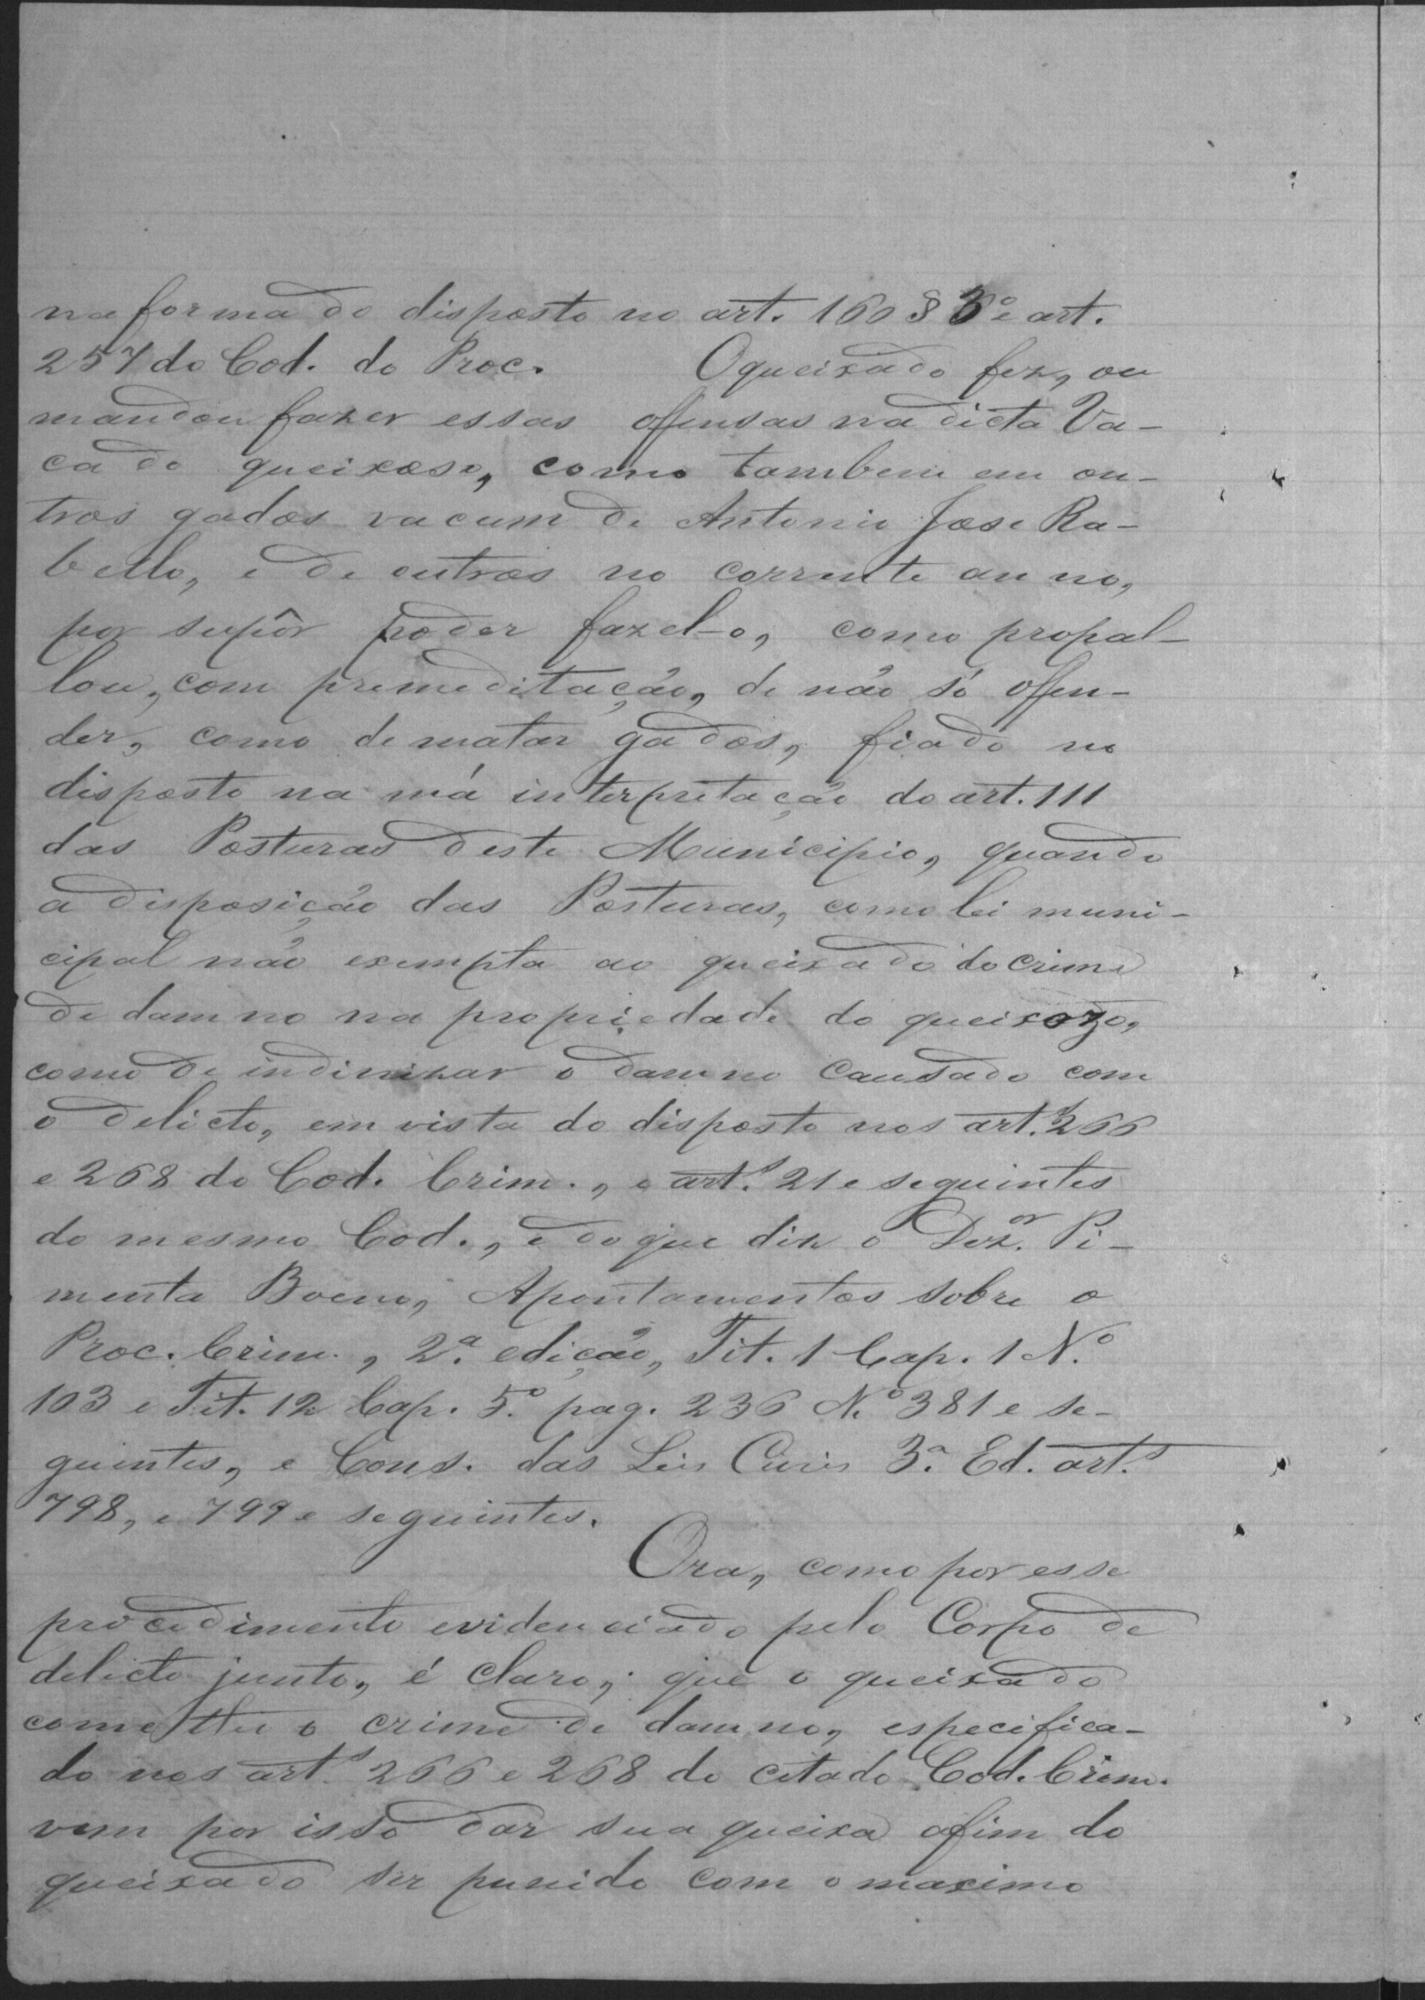 na forma do disposto no art. 160 § 3º e art.
257 do Cod. do Proc. O queixado fez, ou
mandou fazer essas offensas na dicta Va-
ca do queixoso, como tambem em ou-
tros gados vacum de Antonio José Ra-
bello, e de outros no corrente anno,
por supôr poder fazel-o, como propal-
lou, com premeditação, de não só offen-
der, como de matar gados, fiado no
disposto na má interpretação do art. 111
das Posturas deste Municipio, quando
a disposição das Posturas, como lei muni-
cipal não exempta ao queixado do crime
de damno na propriedade do queixozo,
como de indimizar o damno causado com
o delicto, em vista do disposto nos art.s 266
e 268 do Cod. Crim., e art.s 21 e seguintes
do mesmo Cod., e do que diz o Dez.or Pi-
menta Bueno, Apontamentos sobre o
Proc. Crim., 2.ª edição, Tit. 1 Cap. 1 N.º
103 e Tit. 12 Cap. 5.º pag. 236 N.º 381 e se-
guintes, e Cons. das Leis Civis 3.ª Ed. art.s
798, e 799 e seguintes.
Ora, como por esse
procedimento evidenciado pelo Corpo de
delicto junto, é claro, que o queixado
cometteu o crime de damno, especifica-
do nos art.s 266 e 268 do citado Cod. Crim.
vem por isso dar sua queixa afim do
queixado ser punido com o maximo